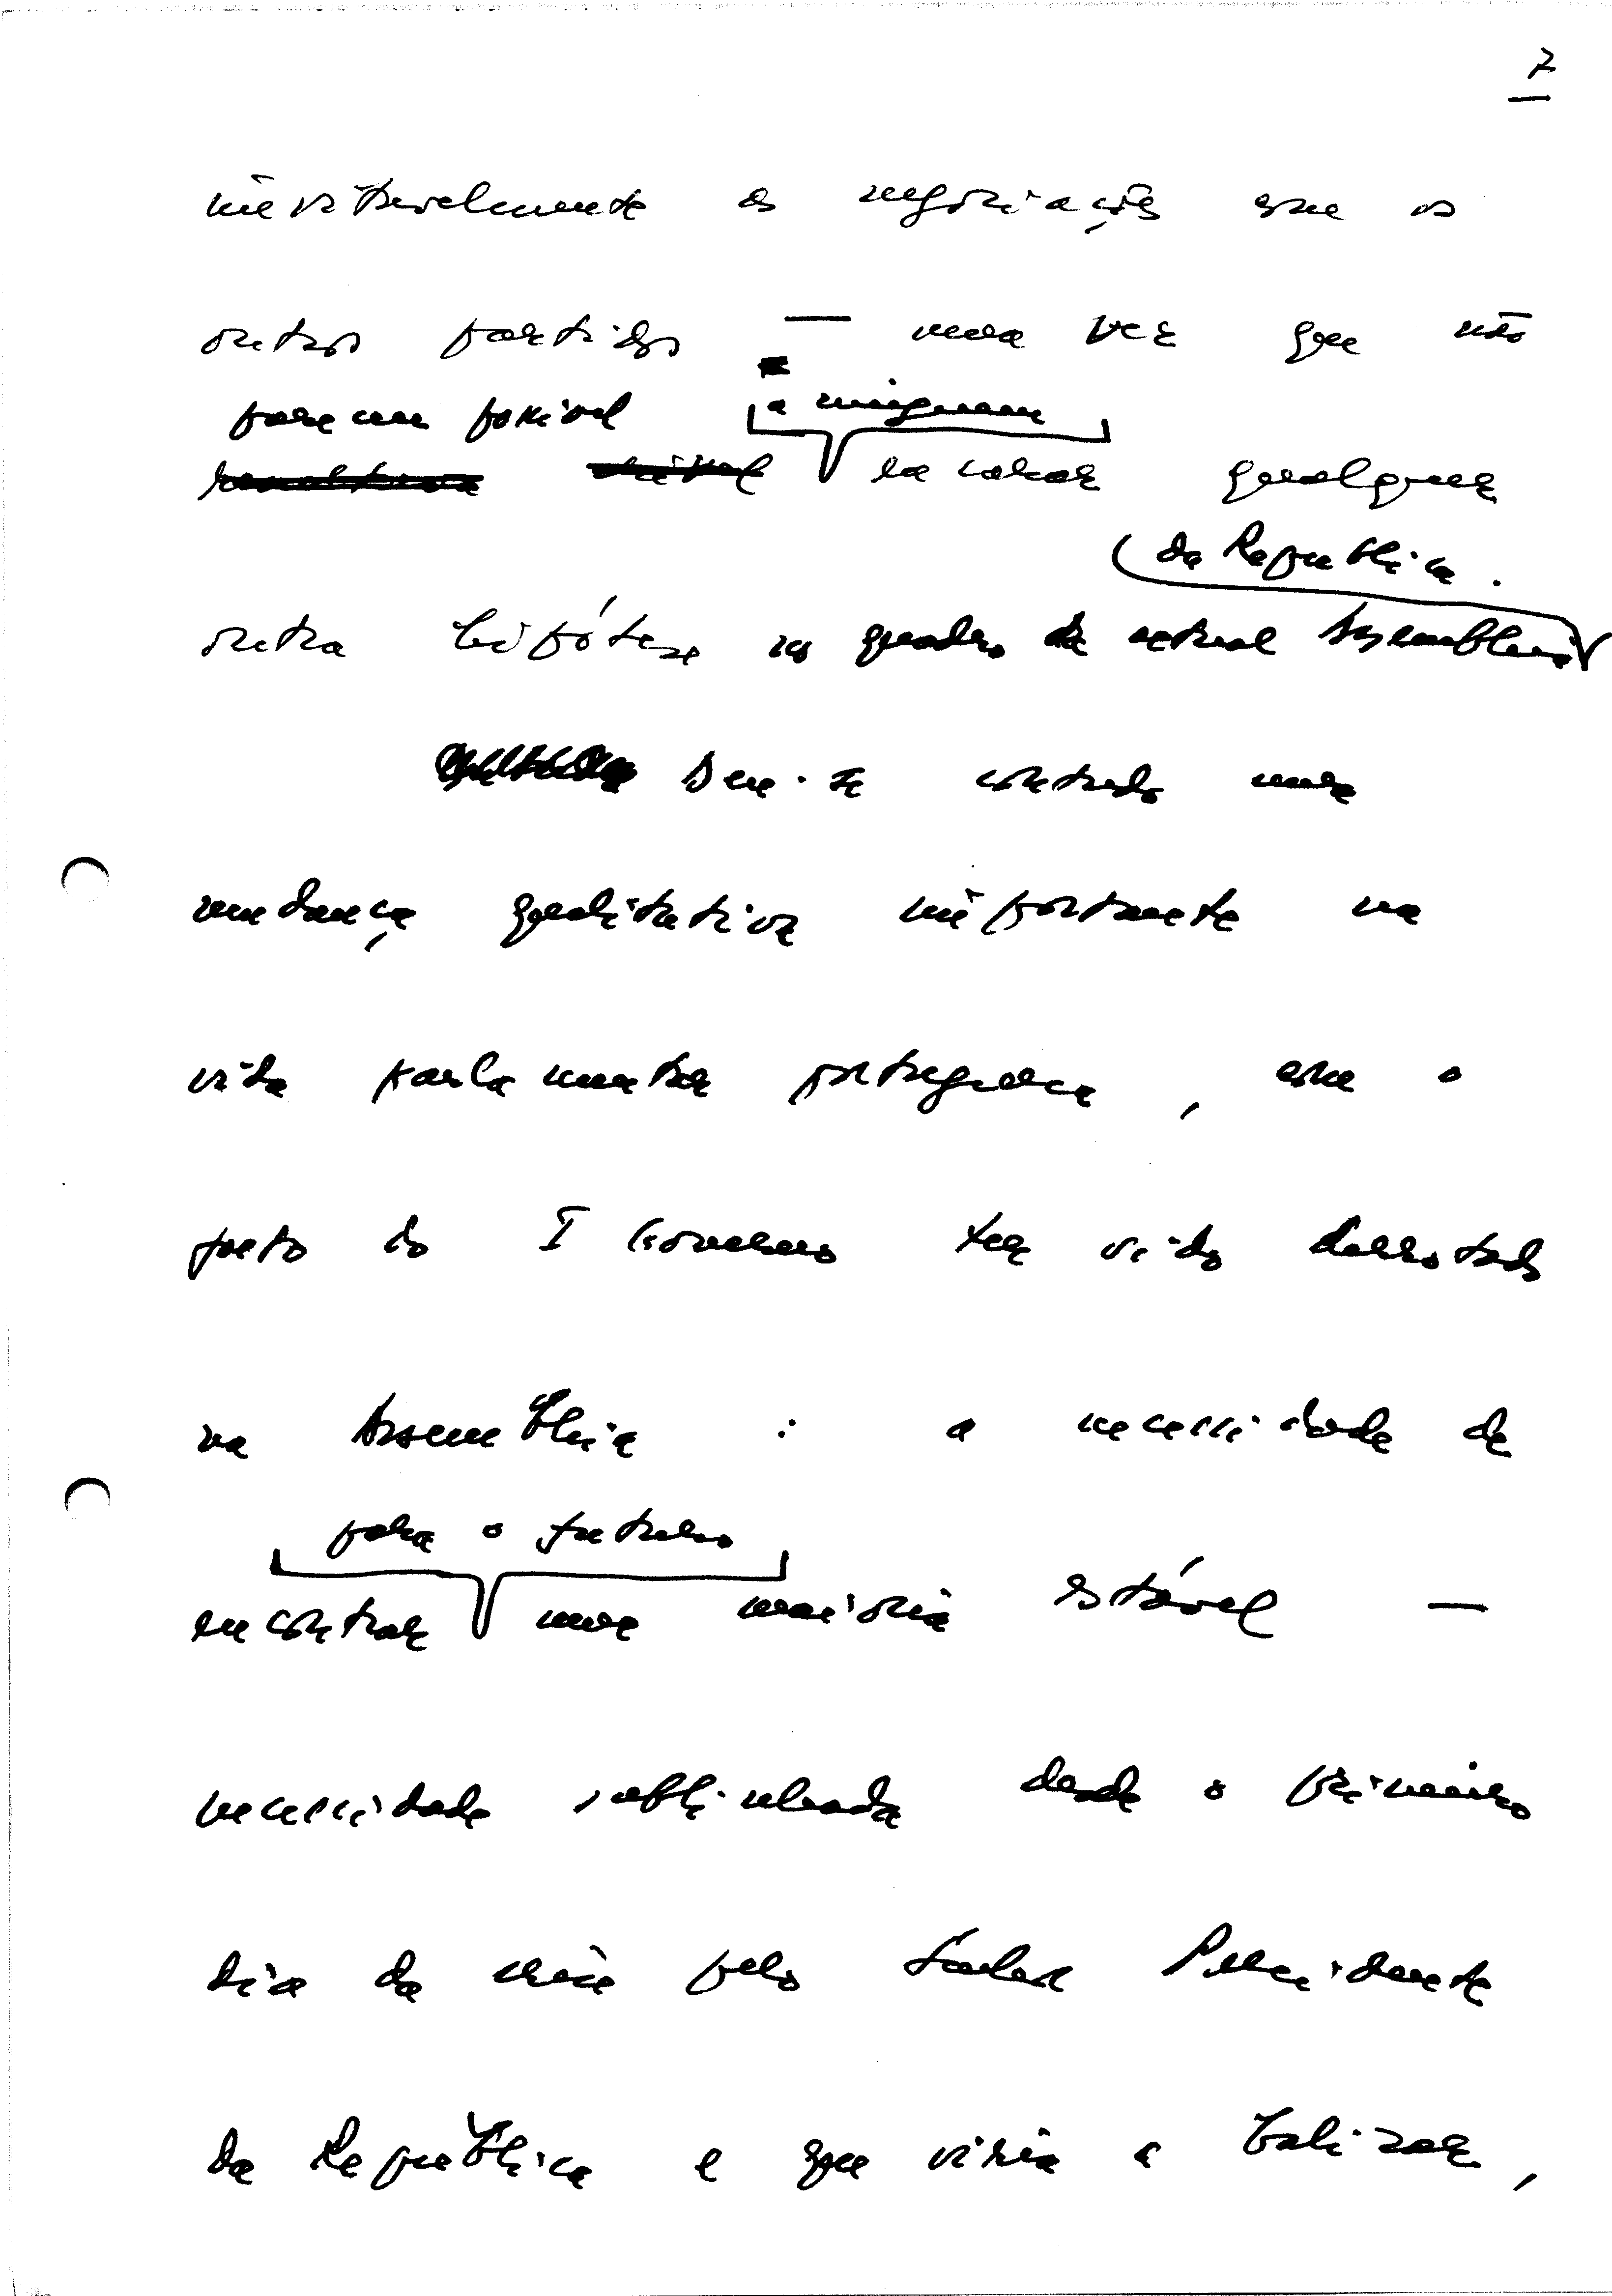 7
inevitavelmente as negociações com os
outros partidos — uma vez que não
parecem possível
a ninguém
encarar qualquer
da República.
outra hipótese no quadro da actual Assembleia
Deu-se contudo uma
mudança qualitativa importante na
vida parlamentar portuguesa, com o
facto do I Governo ter sido derrotado
na Assembleia : a necessidade de
para o futuro
encontrar uma maioria estável —
necessidade sublinhada desde o primeiro
dia da crise pelo Senhor Presidente
da República e que viria a balizar,